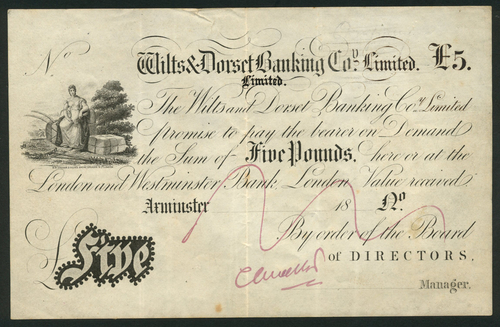 No
Wilts & Dorset Banking Coy. Limited. £5.
Limited.
The Wilts and Dorset Banking Coy. Limited
promise to pay the bearer on Demand
the Sum of Five Pounds, here or at the
London and Westminster Bank London Value received
Axminster 18 No.
By order of the Board
of DIRECTORS,
£ Five
Manager.